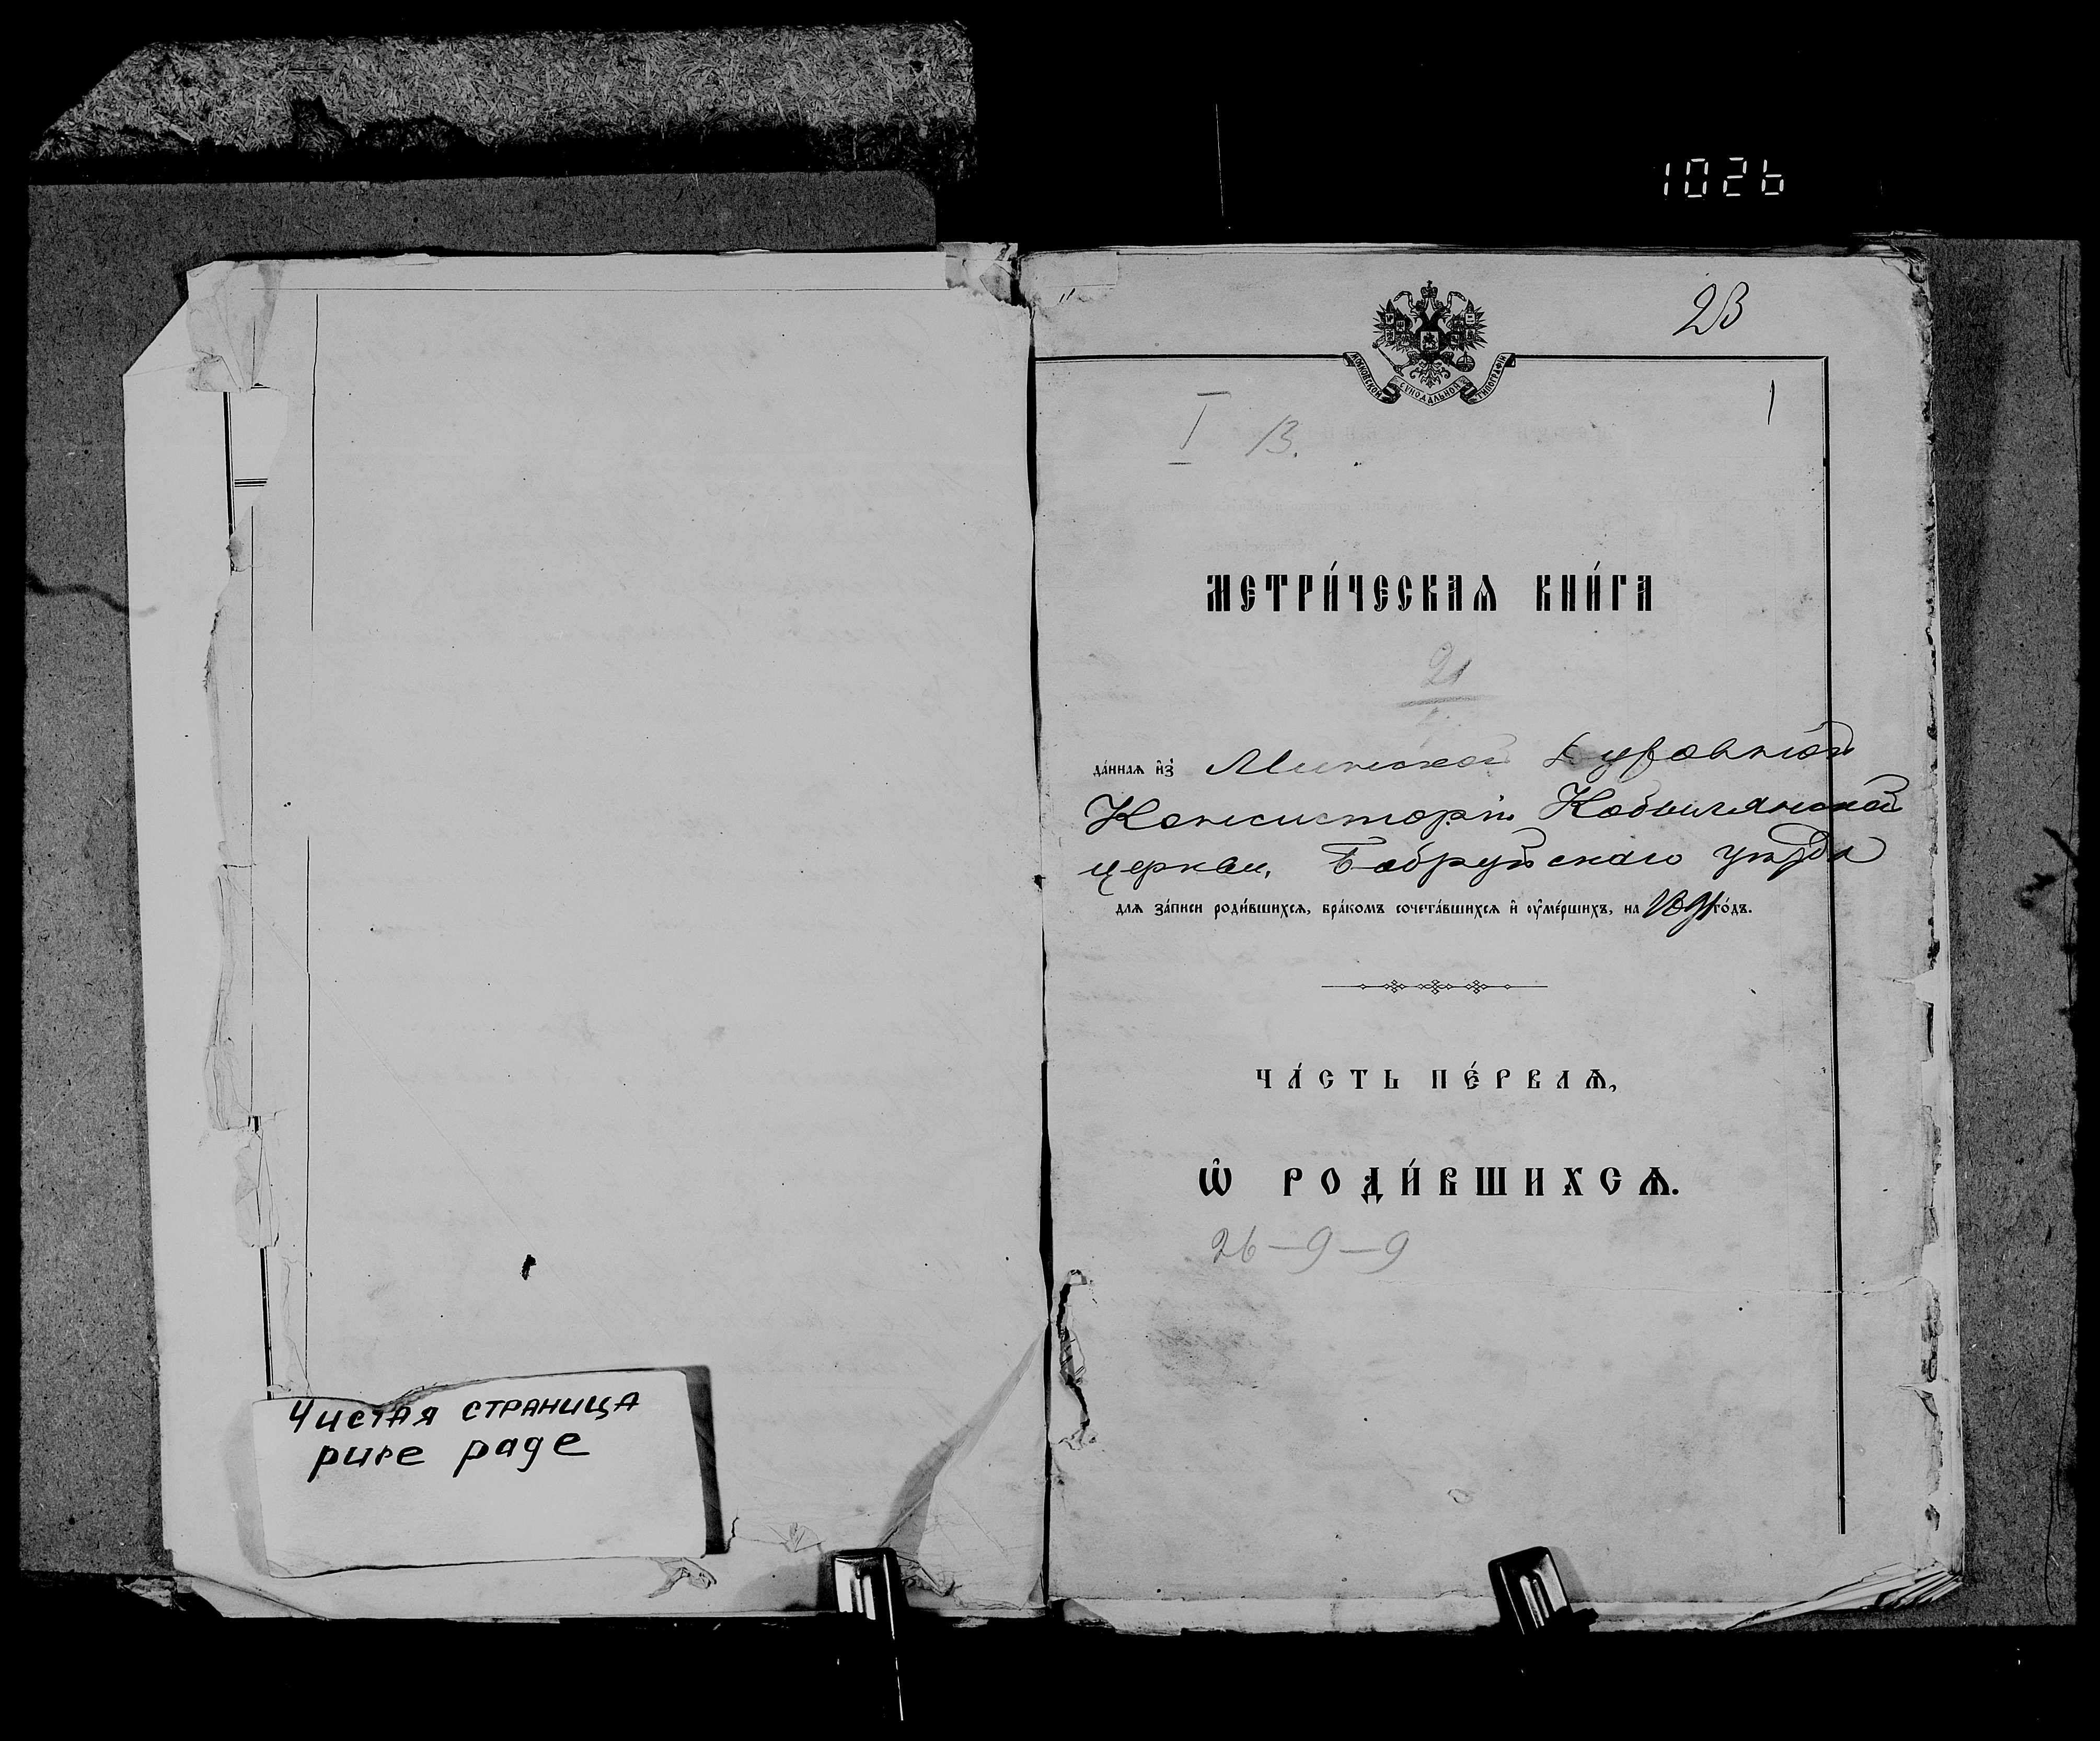 1026
23
МОСКОВСКОЙ СѴНОДАЛЬНОЙ ТИПОГРАФІИ
1
I В.
МЕТРИ́ЧЕСКАѦ КНИ́ГА
21
да́ннаѧ и҆з̾ Минской Духовной
Консисторіи Кобылянской
церкви, Бобруйскаго уѣзда
длѧ за́писи роди́вшихсѧ, бра́комъ сочета́вшихсѧ и҆ оу҆ме́ршихъ, на 1891 го́дъ.
ЧА́СТЬ ПЕ́РВАѦ,
Ѽ РОДИ́ВШИХСѦ.
26-9-9
Чистая страница
pure page